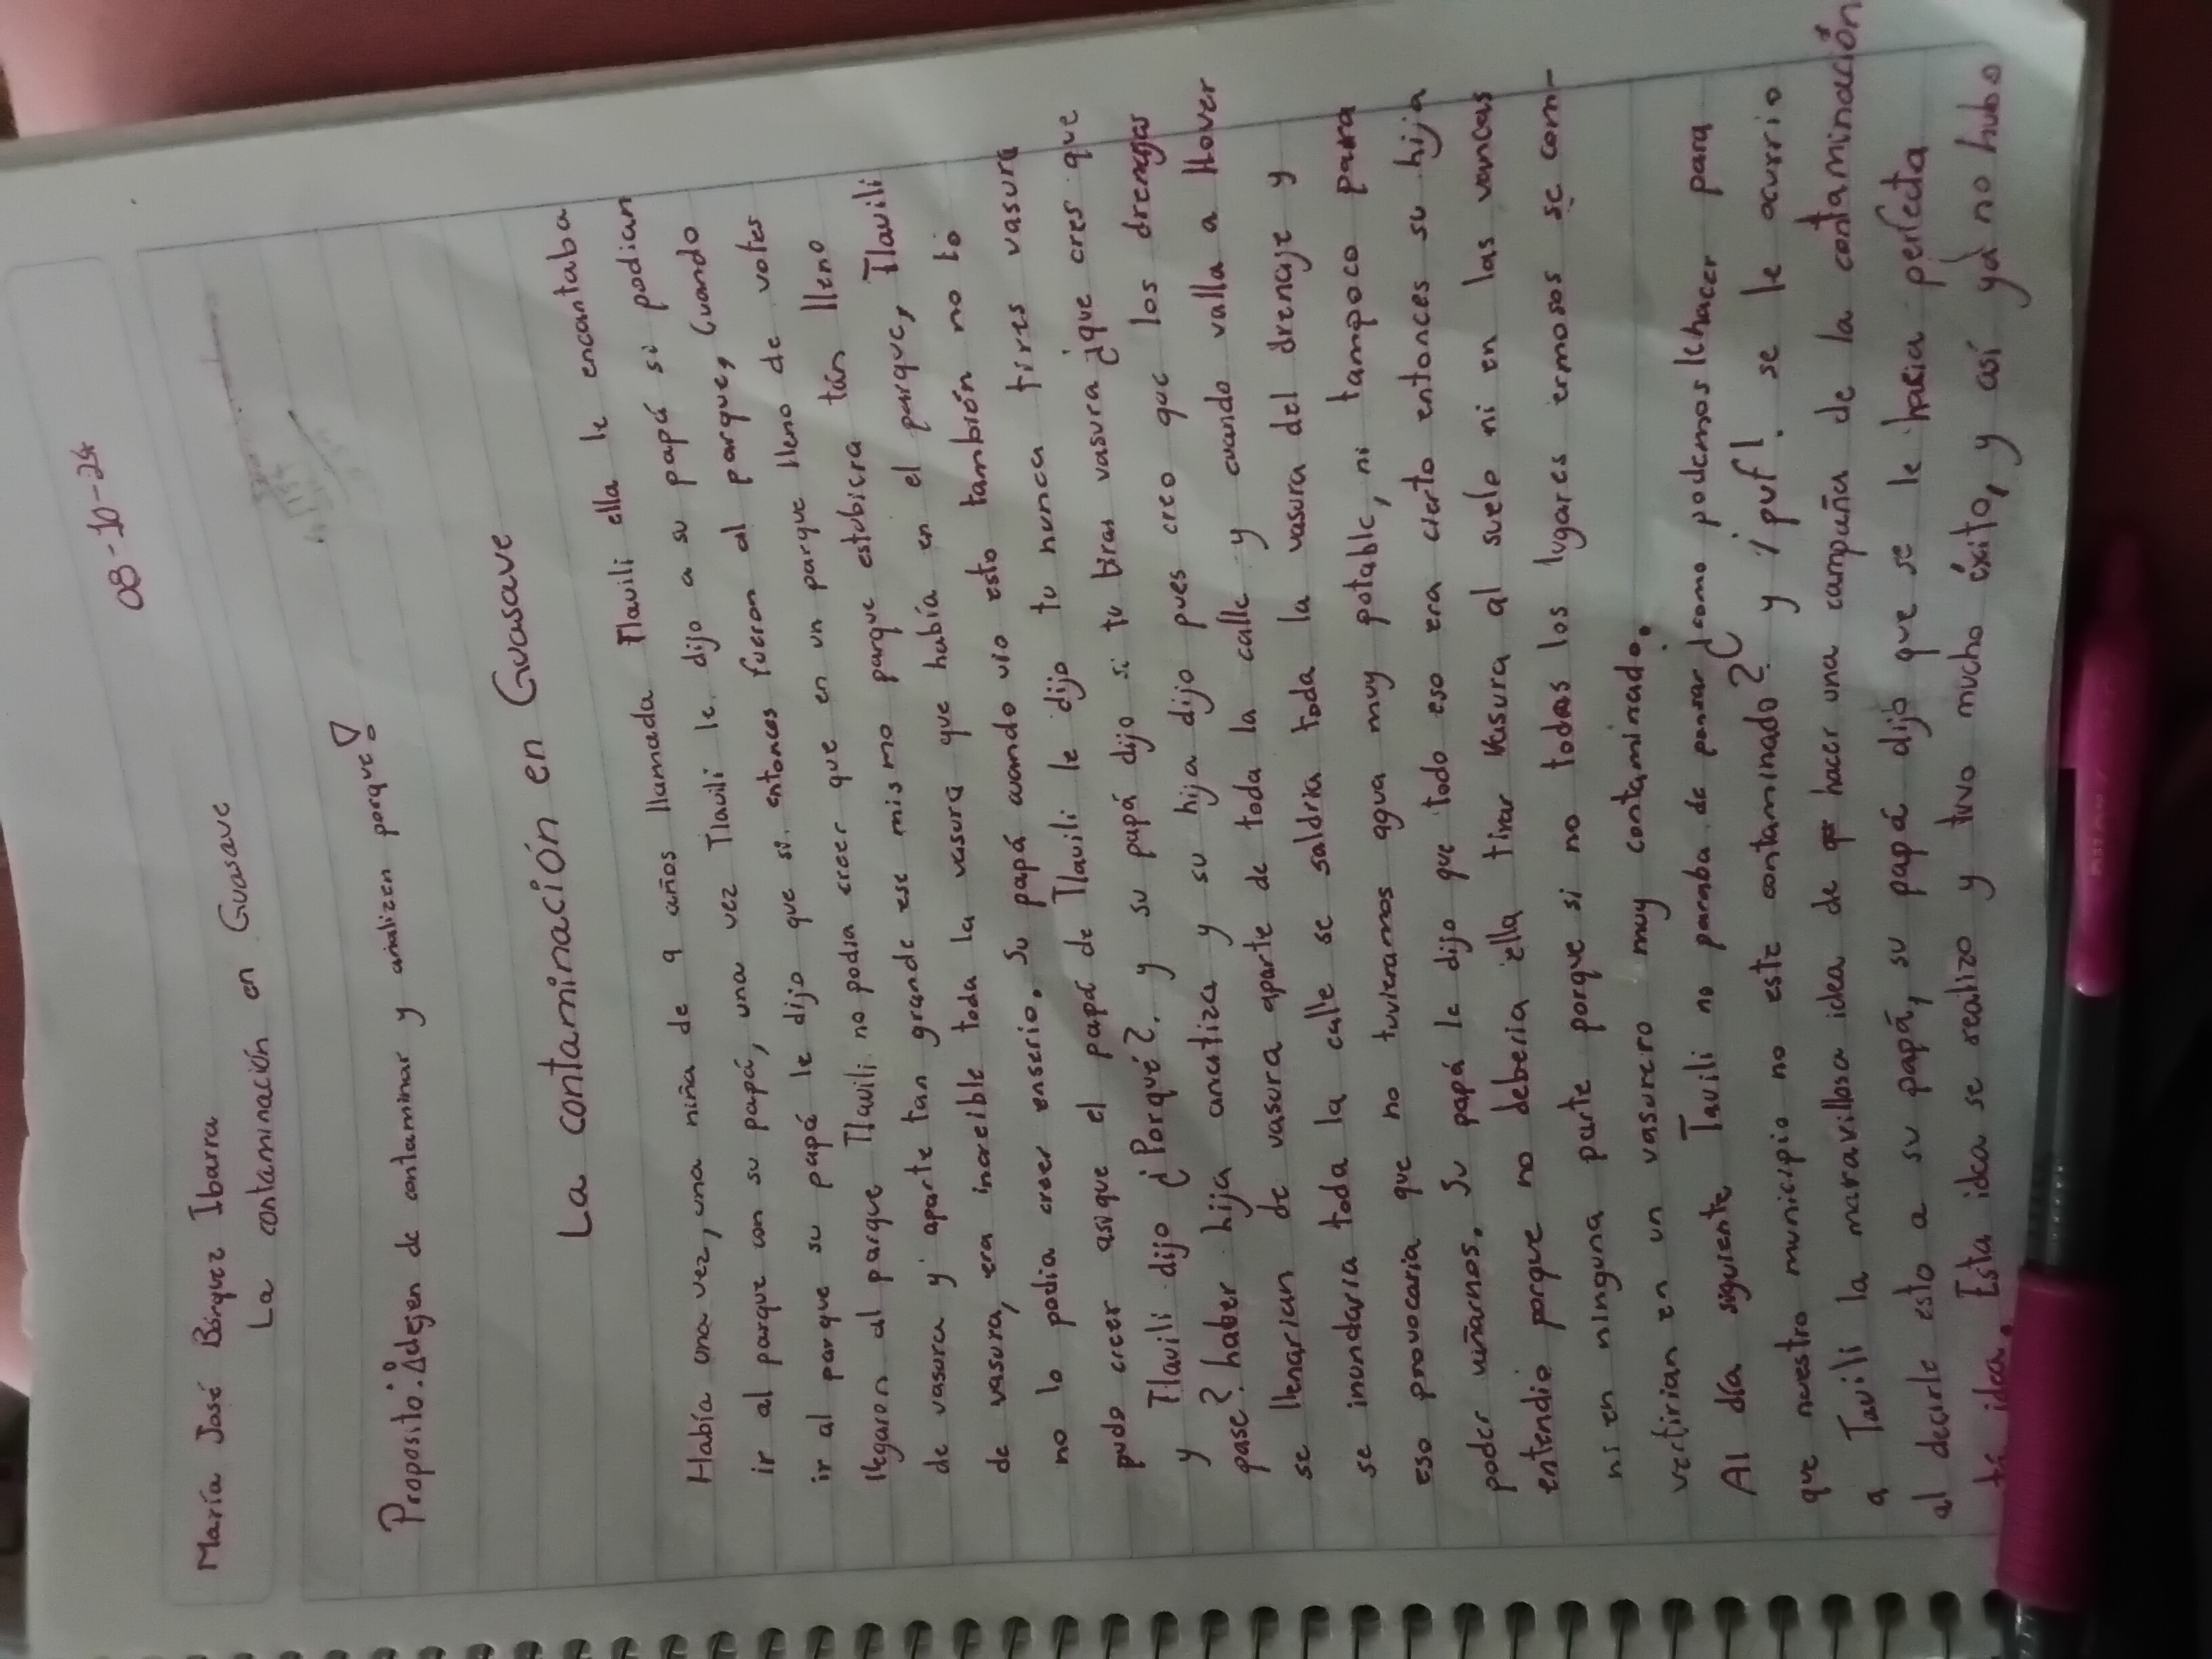 08-10-24
María José Bórquez Ibarra
La contaminación en Guasave
Proposito: ¡dejen de contaminar y analizen porque!
La contaminación en Guasave
Había una vez, una niña de 9 años llamada Tlavili ella le encantaba
ir al parque con su papá, una vez Tlavili le dijo a su papá si podian
ir al parque su papá le dijo que si, entonces fueron al parque, Cuando
llegaron al parque Tlavili no podia creer que en un parque lleno de votes
de vasura y aparte tan grande ese mismo parque estubiera tán lleno
de vasura, era increible toda la vasura que había en el parque, Tlavili
no lo podia creer enserio. Su papá cuando vio esto también no lo
pudo creer asi que el papá de Tlavili le dijo tu nunca tires vasura
y Tlavili dijo ¿Porqué?. y su papá dijo si tu tiras vasura ¿que cres que
pase? haber hija analiza y su hija dijo pues creo que los drenages
se llenarian de vasura aparte de toda la calle y cuando valla a llover
se inundaría toda la calle se saldria toda la vasura del drenaje y
eso provocaria que no tuvieramos agua muy potable, ni tampoco para
poder vañarnos. Su papá le dijo que todo eso era cierto entonces su hija
entendio porque no deberia ella tirar vasura al suelo ni en las vancas
ni en ninguna parte porque si no todos los lugares ermosos se con-
vertirian en un vasurero muy contaminado.
Al día siguiente Tavili no paraba de pensar ¿como podemos hacer para
que nuestro municipio no este contaminado? y ¡puf! se le ocurrio
a Tavili la maravillosa idea de hacer una campaña de la contaminación
al decirle esto a su papá, su papá dijo que se le hacia perfecta
tá idea. Esta idea se realizo y tuvo mucho éxito, y así ya no hubo